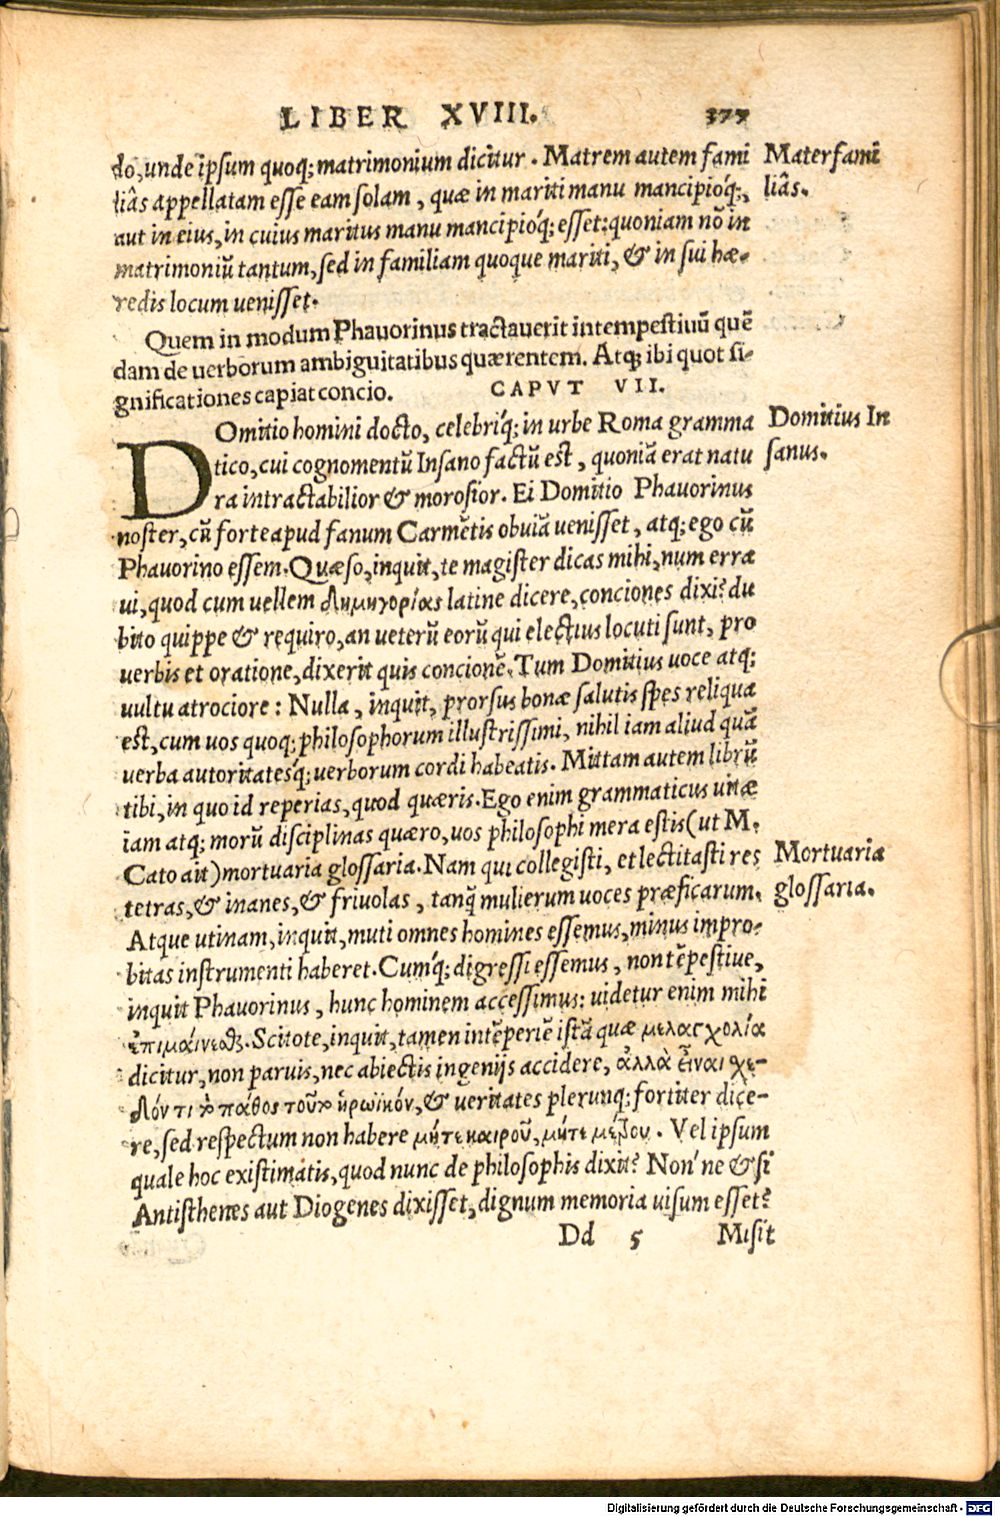 LIBER XVIII. 377
do, unde ipsum quoq; matrimonium dicitur. Matrem autem fami
liâs appellatam esse eam solam, quæ in mariti manu mancipióq;,
aut in eius, in cuius maritus manu mancipióq; esset: quoniam nõ in
matrimoniũ tantum, sed in familiam quoque mariti, & in sui hæ-
redis locum uenisset.
Materfami
liâs.
Quem in modum Phauorinus tractauerit intempestiuũ quẽ
dam de uerborum ambiguitatibus quærentem. Atq; ibi quot si-
gnificationes capiat concio. CAPVT VII.
DOmitio homini docto, celebriq́; in urbe Roma gramma
tico, cui cognomentũ Insano factũ est, quoniã erat natu
ra intractabilior & morosior. Ei Domitio Phauorinus
noster, cũ forte apud fanum Carmẽtis obuiã uenisset, atq; ego cũ
Phauorino essem. Quæso, inquit, te magister dicas mihi, num erra
ui, quod cum uellem δημηγορίας latine dicere, conciones dixi? du
bito quippe & requiro, an ueterũ eorũ qui electius locuti sunt, pro
uerbis et oratione, dixerit quis concionẽ. Tum Domitius uoce atq;
uultu atrociore: Nulla, inquit, prorsus bonæ salutis spes reliqua
est, cum uos quoq; philosophorum illustrissimi, nihil iam aliud quã
uerba autoritatesq́; uerborum cordi habeatis. Mittam autem librũ
tibi, in quo id reperias, quod quæris. Ego enim grammaticus uitæ
iam atq; morũ disciplinas quæro, uos philosophi mera estis (ut M.
Cato ait) mortuaria glossaria. Nam qui collegisti, et lectitasti res
tetras, & inanes, & friuolas, tanq̃ mulierum uoces præficarum.
Atque utinam, inquit, muti omnes homines essemus, minus impro-
bitas instrumenti haberet. Cumq́; digressi essemus, non tẽpestiue,
inquit Phauorinus, hunc hominem accessimus: uidetur enim mihi
ἐπιμαίνεσθ. Scitote, inquit, tamen intẽperiẽ istã quæ μελαγχολία
dicitur, non paruis, nec abiectis ingenijs accidere, ἀλλὰ εἶναι χε-
δόν τι τὸ πάθος τοῦτο ἡρωϊκόν, & ueritates plerunq; fortiter dice-
re, sed respectum non habere μήτε καιροῦ, μήτε μέτρου. Vel ipsum
quale hoc existimatis, quod nunc de philosophis dixit? Non'ne & si
Antisthenes aut Diogenes dixisset, dignum memoria uisum esset?
Domitius In
sanus.
Mortuaria
glossaria.
Dd 5 Misit
Digitalisierung gefördert durch die Deutsche Forschungsgemeinschaft - DFG